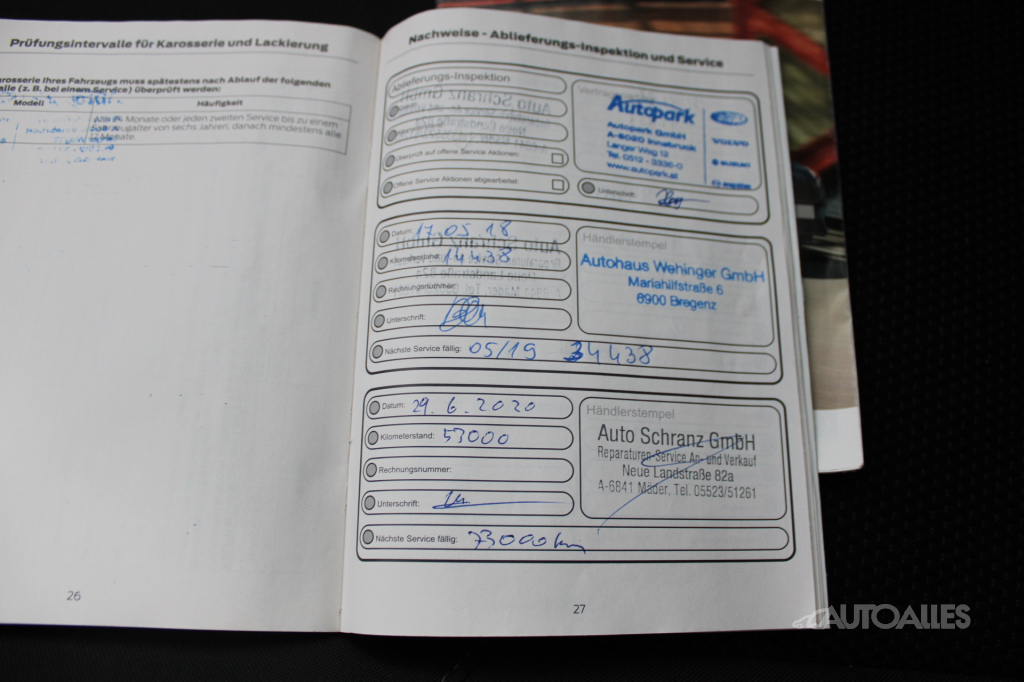 Prüfungsintervalle für Karosserie und Lackierung
arosserie Ihres Fahrzeugs muss spätestens nach Ablauf der folgenden
alle (z. B. bei einem Service) überprüft werden:
Modell
Häufigkeit
Monate oder jeden zweiten Service bis zu einem
alter von sechs Jahren, danach mindestens alle
Monate.
26
Nachweise - Ablieferungs-Inspektion und Service
Ablieferungs-Inspektion
Überprüft auf offene Service Aktionen:
Offene Service Aktionen abgearbeitet:
Autopark
Autopark GmbH
A-6020 Innsbruck
Langer Weg 12
Tel. 0512 - 3336-0
www.autopark.at
Ford
VOLVO
SUZUKI
mazda
Unterschrift:
Datum: 17.05.18
Kilometerstand: 14438
Rechnungsnummer:
Unterschrift:
Händlerstempel
Autohaus Wehinger GmbH
Mariahilfstraße 6
6900 Bregenz
Nächste Service fällig: 05/19 34438
Datum: 29.6.2020
Kilometerstand: 53000
Rechnungsnummer:
Unterschrift:
Händlerstempel
Auto Schranz GmbH
Reparaturen-Service An- und Verkauf
Neue Landstraße 82a
A-6841 Mäder, Tel. 05523/51261
Nächste Service fällig: 73000 km
27
AUTOALLES